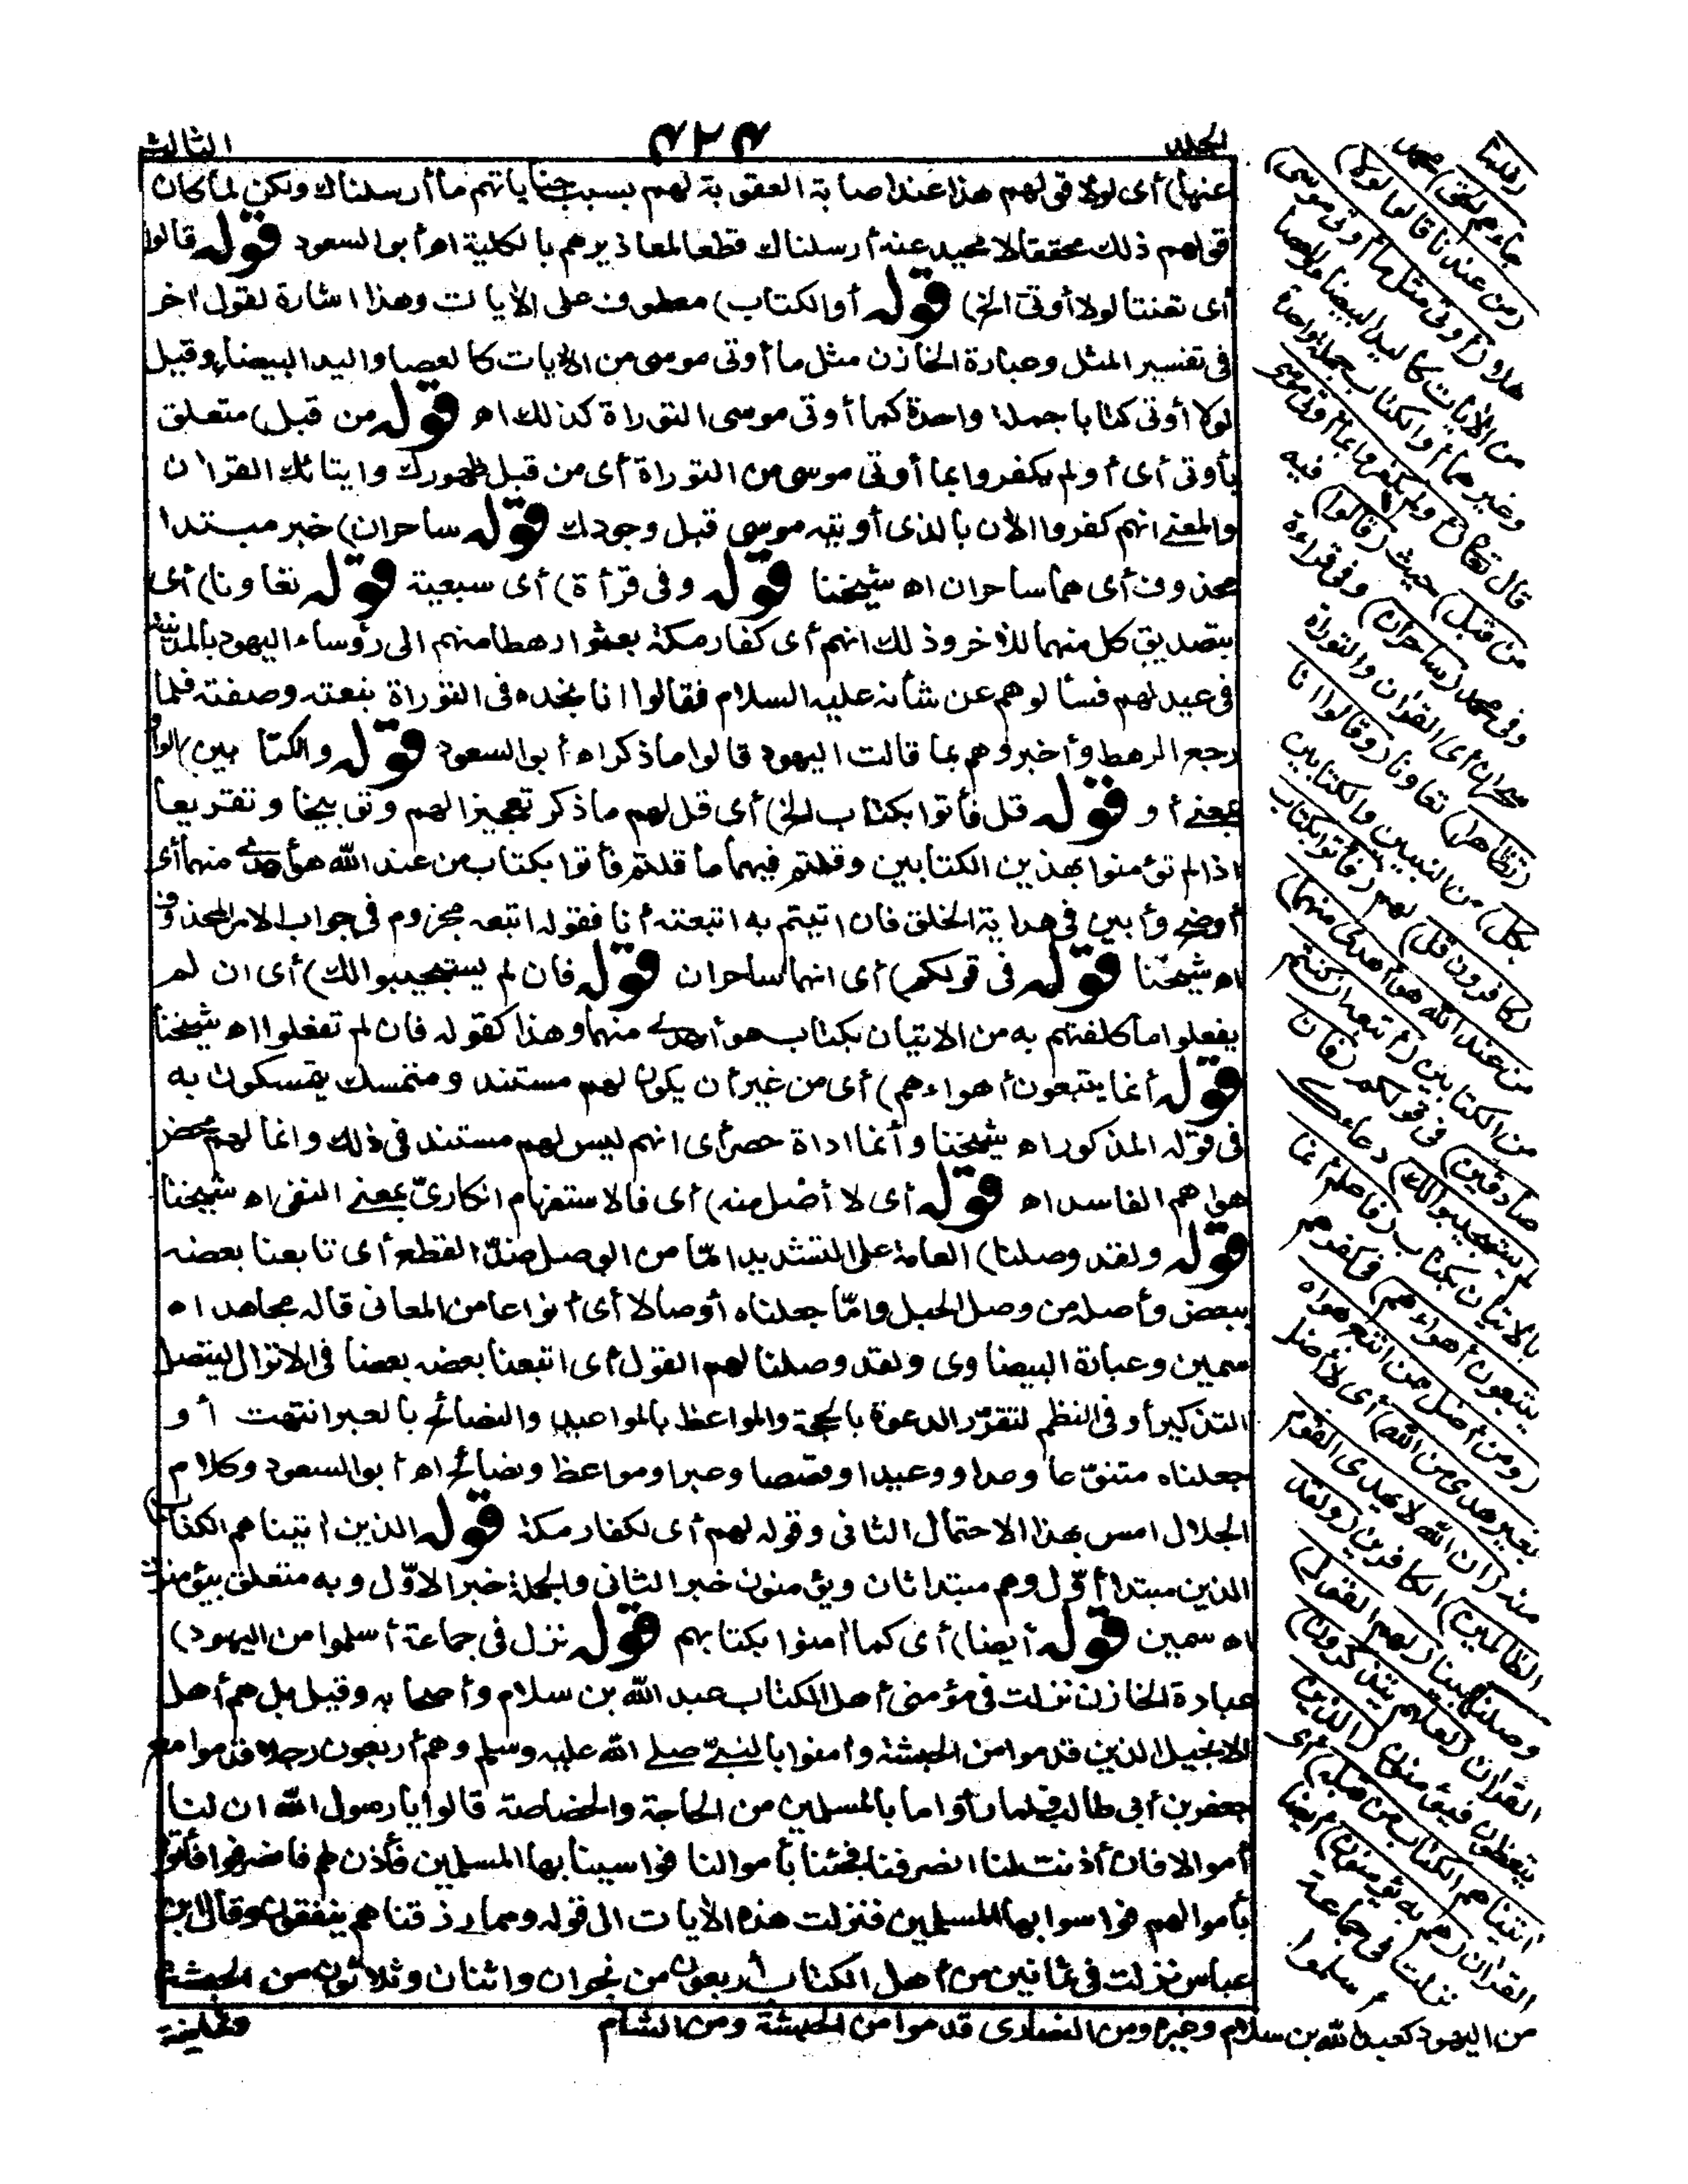 المجلد
٤٢٤
الثالث
عنها) أى لولا قولهم هذا عند اصابة العقوبة لهم بسبب جناياتهم ما أرسلناك ولكن لما كان
قولهم ذلك محققا لا محيد عنه أرسلناك قطعا لمعاذيرهم بالكلية اه أبو السعود قوله قالوا
أى تعنتا لولا أوتى الخ) قوله أو الكتاب) معطوف على الأيات وهذا اشارة لقول اخر
فى تفسير المثل وعبارة الخازن مثل ما أوتى موسى من الأيات كالعصا واليد البيضاء وقيل
لولا أوتى كتابا جملة واحدة كما أوتى موسى التوراة كذلك اه قوله من قبل) متعلق
بأوتى أى أولم يكفروا بما أوتى موسى من التوراة أى من قبل ظهورك وايتائك القرآن
والمعنى انهم كفروا الأن بالذى أوتيه موسى قبل وجودك قوله ساحران) خبر مبتدا
محذوف أى هما ساحران اه شيخنا قوله وفى قرأة) أى سبعية قوله تعاونا) أى
بتصديق كل منهما للاخر وذلك انهم أى كفار مكة بعثوا رهطا منهم الى رؤساء اليهود بالمدينة
فى عيد لهم فسألوهم عن شأنه عليه السلام فقالوا انا نجده فى التوراة بنعته وصفته فلما
رجع الرهط وأخبروهم بما قالت اليهود قالوا ما ذكر اه أبو السعود قوله والكتابين) الواو
بمعنى أو قوله قل فأتوا بكتاب الخ) أى قل لهم ما ذكر تعجيزا لهم وتوبيخا وتقريعا
اذا لم تؤمنوا بهذين الكتابين وقلتم فيهما ما قلتم فأتوا بكتاب من عند الله هو أهدى منهما أى
أوضح وأبين فى هداية الخلق فان اتيتم به اتبعته أنا فقوله اتبعه مجزوم فى جواب الامر المحذوف
اه شيخنا قوله فى قولكم) أى انهما ساحران قوله فان لم يستجيبوا لك) أى ان لم
يفعلوا ما كلفتهم به من الاتيان بكتاب هو أهدى منهما وهذا كقوله فان لم تفعلوا اه شيخنا
قوله أنما يتبعون أهواءهم) أى من غير أن يكون لهم مستند ومتمسك يتمسكون به
فى قوله المذكور اه شيخنا وأنما اداة حصر أى انهم ليس لهم مستند فى ذلك وانما لهم محض
هواهم الفاسد اه قوله أى لا أضل منه) أى فالاستفهام انكارىّ بمعنى النفى اه شيخنا
قوله ولقد وصلنا) العامة على التشديد امّا من الوصل ضدّ القطع أى تابعنا بعضه
ببعض وأصله من وصل الحبل وامّا جعلناه أوصالا أى أنواعا من المعانى قاله مجاهد اه
سمين وعبارة البيضاوى ولقد وصلنا لهم القول أى اتبعنا بعضه بعضا فى الانزال ليتصل
التذكير أو فى النظم لتقرّر الدعوة بالحجة والمواعظ بالمواعيد والنصائح بالعبر انتهت أو
جعلناه متنوّعا وعدا ووعيدا وقصصا وعبرا ومواعظ ونصائح اه أبو السعود وكلام
الجلال امس بهذا الاحتمال الثانى وقوله لهم أى لكفار مكة قوله الذين اتيناهم الكتاب)
الذين مبتدأ أوّل وهم مبتدا ثان ويؤمنون خبر الثانى والجملة خبر الاوّل وبه متعلق بيؤمنون
اه سمين قوله أيضا) أى كما آمنوا بكتابهم قوله نزل فى جماعة أسلموا من اليهود)
عبارة الخازن نزلت فى مؤمنى أهل الكتاب عبد الله بن سلام وأصحابه وقيل بل هم أهل
الانجيل الذين قدموا من الحبشة وآمنوا بالنبىّ صلى الله عليه وسلم وهم أربعون رجلا قدموا مع
جعفر بن أبى طالب فلما رأوا ما بالمسلمين من الحاجة والخصاصة قالوا يا رسول الله ان لنا
أموالا فان أذنت لنا انصرفنا فجئنا بأموالنا فواسينا بها المسلمين فأذن لهم فانصرفوا فأتوا
بأموالهم فواسوا بها المسلمين فنزلت هذه الأيات الى قوله ومما رزقناهم ينفقون وقال ابن
عباس نزلت فى ثمانين من أهل الكتاب أربعون من نجران واثنان وثلاثون من الحبشة
وثمانية
(فلما
جاءهم الحق) محمد
(من عندنا قالوا لولا)
هلا (أوتى مثل ما أوتى موسى)
من الأيات كاليد البيضاء والعصا
وغيرهما أو الكتاب جملة واحدة
قال تعالى (أولم يكفروا بما أوتى موسى
من قبل) حيث (قالوا) فيه
وفى محمد (ساحران) وفى قراءة
سحران أى القرآن والتوراة
(تظاهرا) تعاونا (وقالوا انا
بكل) من النبيين والكتابين
(كافرون قل) لهم (فأتوا بكتاب
من عند الله هو أهدى منهما)
من الكتابين (أتبعه ان كنتم
صادقين) فى قولكم (فان
لم يستجيبوا لك) دعاءك
بالاتيان بكتاب (فاعلم أنما
يتبعون أهواءهم) فى كفرهم
(ومن أضل ممن اتبع هواه
بغير هدى من الله) أى لا أضل
منه (ان الله لا يهدى القوم
الظالمين) الكافرين (ولقد
وصلنا) بينا (لهم القول)
القرآن (لعلهم يتذكرون)
يتعظون فيؤمنون (الذين
آتيناهم الكتاب من قبله) أى
القرآن (هم به يؤمنون) أيضا
نزلت فى جماعة
أسلموا
من اليهود كعبد الله بن سلام وغيره ومن النصارى قدموا من الحبشة ومن الشام